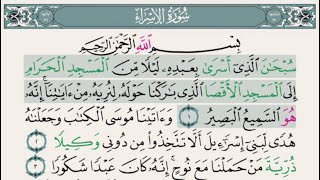 سُورَةُ الإِسْرَاءِ
بِسْمِ اللَّهِ الرَّحْمَٰنِ الرَّحِيمِ
سُبْحَٰنَ ٱلَّذِىٓ أَسْرَىٰ بِعَبْدِهِۦ لَيْلًا مِّنَ ٱلْمَسْجِدِ ٱلْحَرَامِ
إِلَى ٱلْمَسْجِدِ ٱلْأَقْصَا ٱلَّذِى بَٰرَكْنَا حَوْلَهُۥ لِنُرِيَهُۥ مِنْ ءَايَٰتِنَآ إِنَّهُۥ
هُوَ ٱلسَّمِيعُ ٱلْبَصِيرُ ١ وَءَاتَيْنَا مُوسَى ٱلْكِتَٰبَ وَجَعَلْنَٰهُ
هُدًى لِّبَنِىٓ إِسْرَٰٓءِيلَ أَلَّا تَتَّخِذُوا۟ مِن دُونِى وَكِيلًا ٢
ذُرِّيَّةَ مَنْ حَمَلْنَا مَعَ نُوحٍ إِنَّهُۥ كَانَ عَبْدًا شَكُورًا ٣